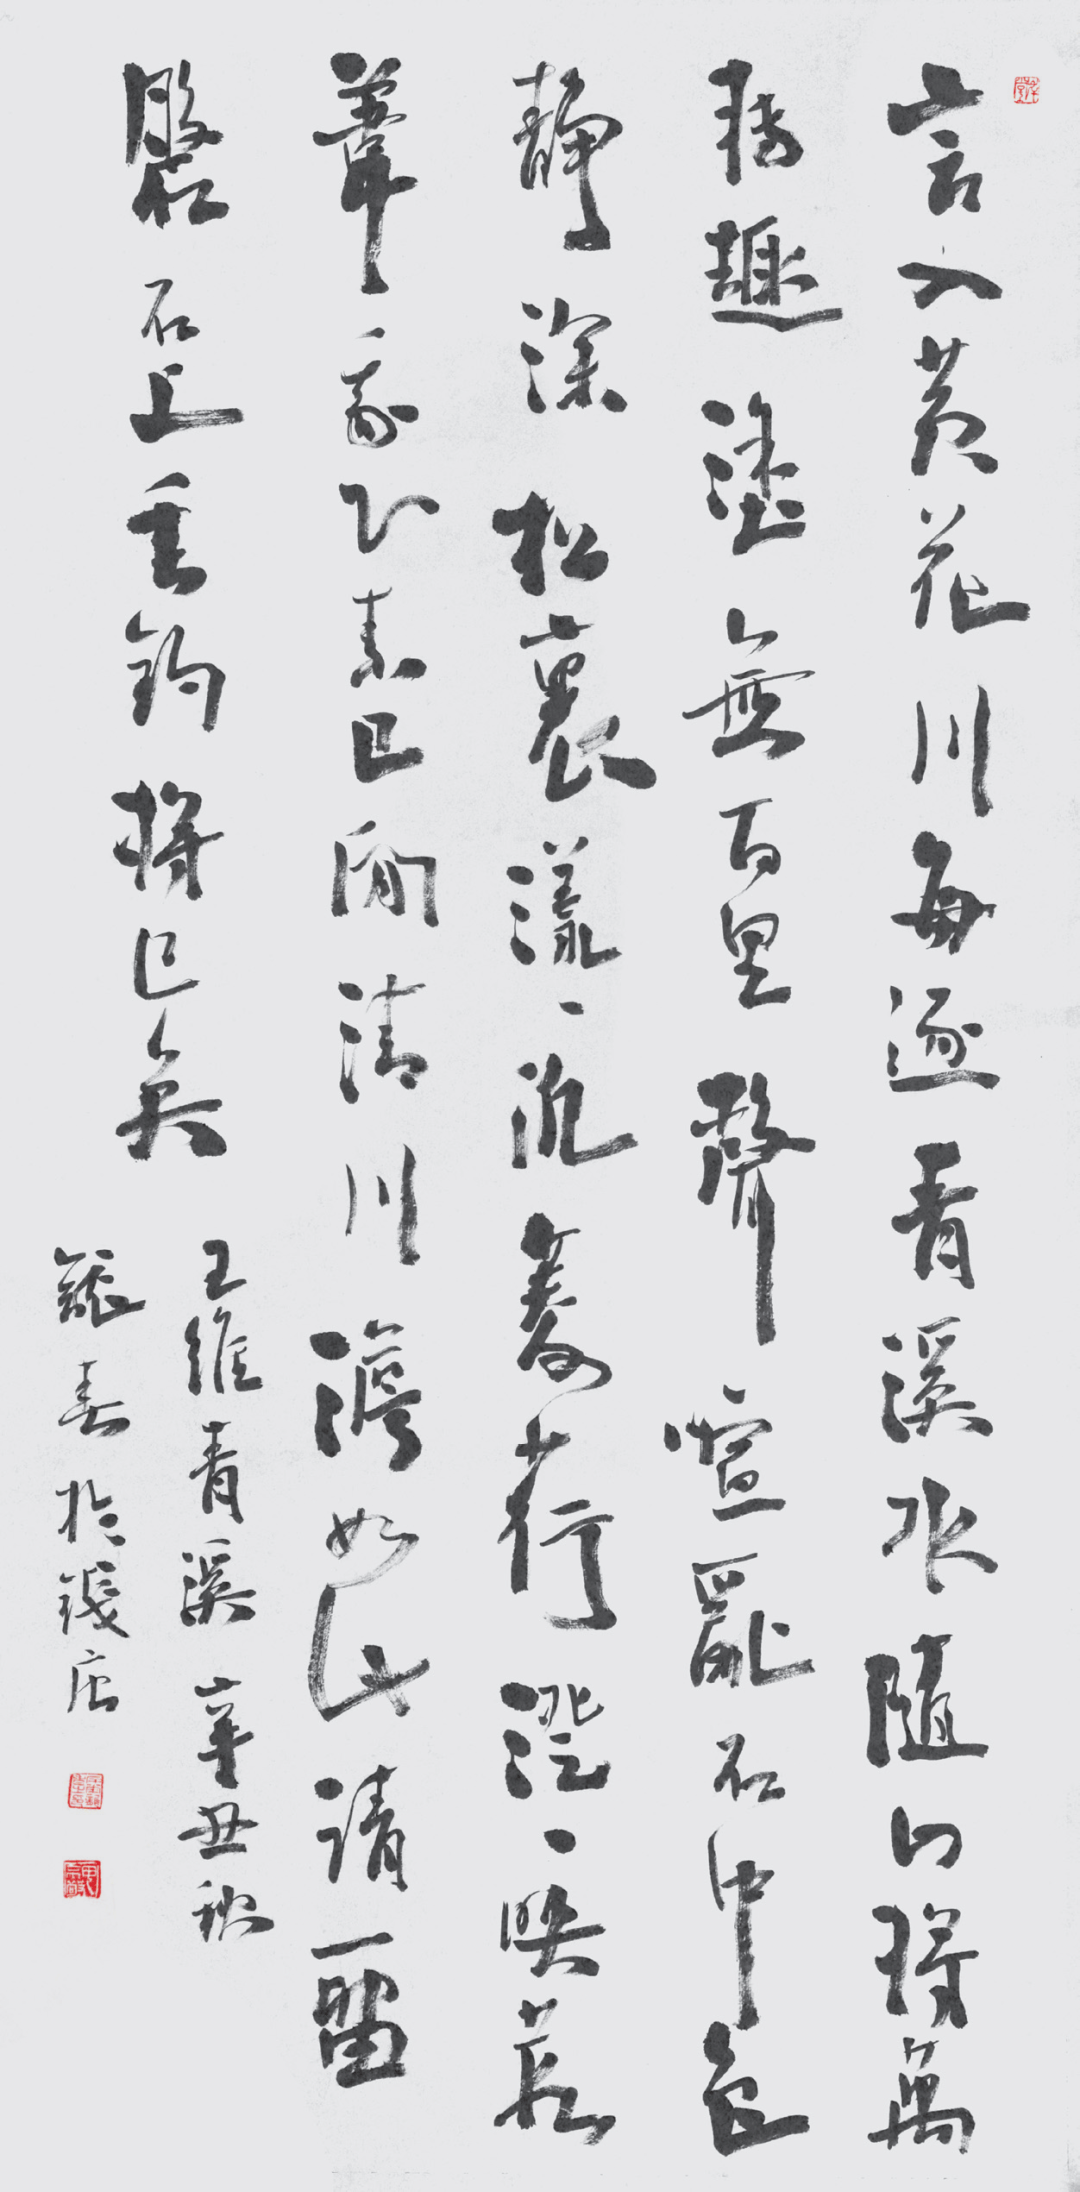 言入黃花川每逐青溪水隨山將萬
轉趣塗無百里聲喧亂石中色
靜深松裏漾、泛菱荇澄、映葭
葦我心素已閒清川澹如此請留
盤石上垂釣將已矣
王維青溪 辛丑秋
春於錢唐